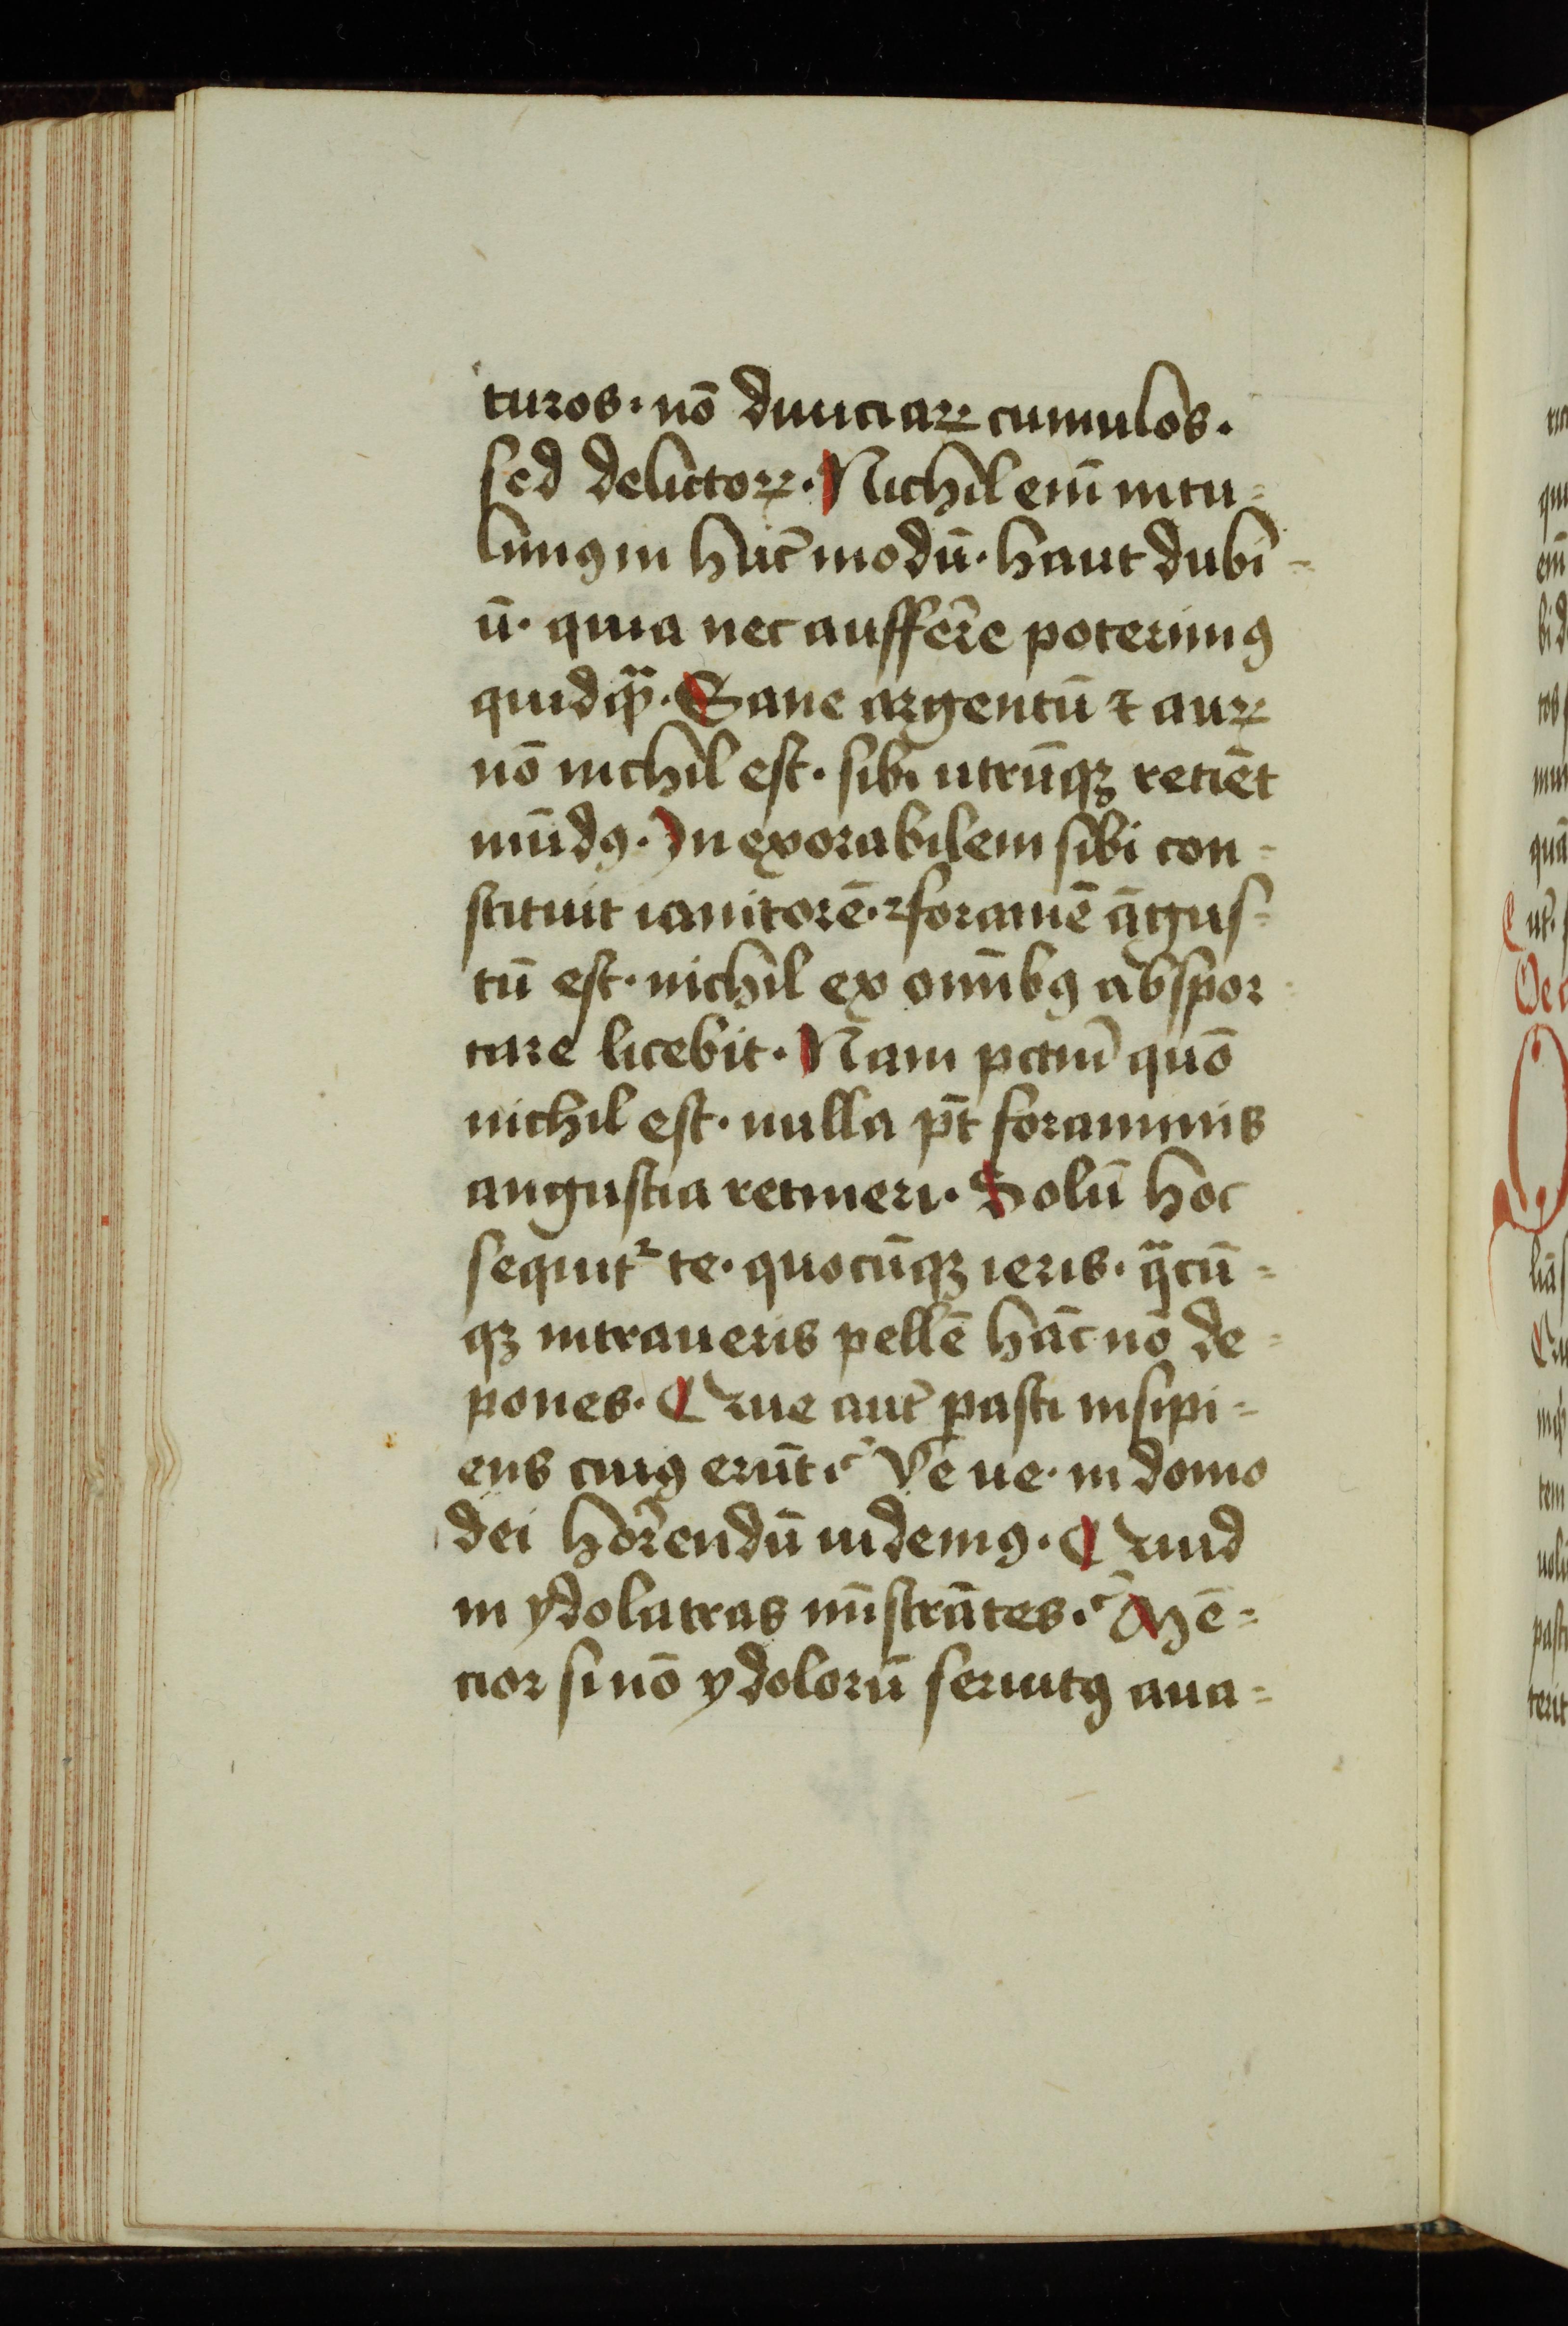 turos. nō diuiciaꝝ cumulos.
sed delictoꝝ. Nichil enī intu=
limꝯ in hūc modū. haut dubi=
ū. quia nec aufferre poterimꝯ
quidqͣꝫ. Sane argentū ⁊ auꝝ
nō nichil est. sibi utrūqꝫ retiēt
mūdꝯ. Inexorabilem sibi con=
stituit ianitorē. ⁊ foramē āgus=
tū est. nichil ex omībꝯ abspor=
tare licebit. Nam pctm̄ quō
nichil est. nulla pt̄ foraminis
angustia retineri. Solū hoc
sequitᷣ te. quocūqꝫ ieris. qͣcū=
qꝫ intraueris pellē hāc nō de=
pones. Que aut̄ pasti insipi=
ens cuiꝯ erūt? Ve ue. in domo
dei horrendū uidemꝯ. Quid
in ydolatras mīstrātes? Mē=
cior si nō ydolorū seruitꝯ aua=